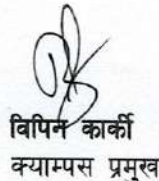 विपिन कार्की
क्याम्पस प्रमुख